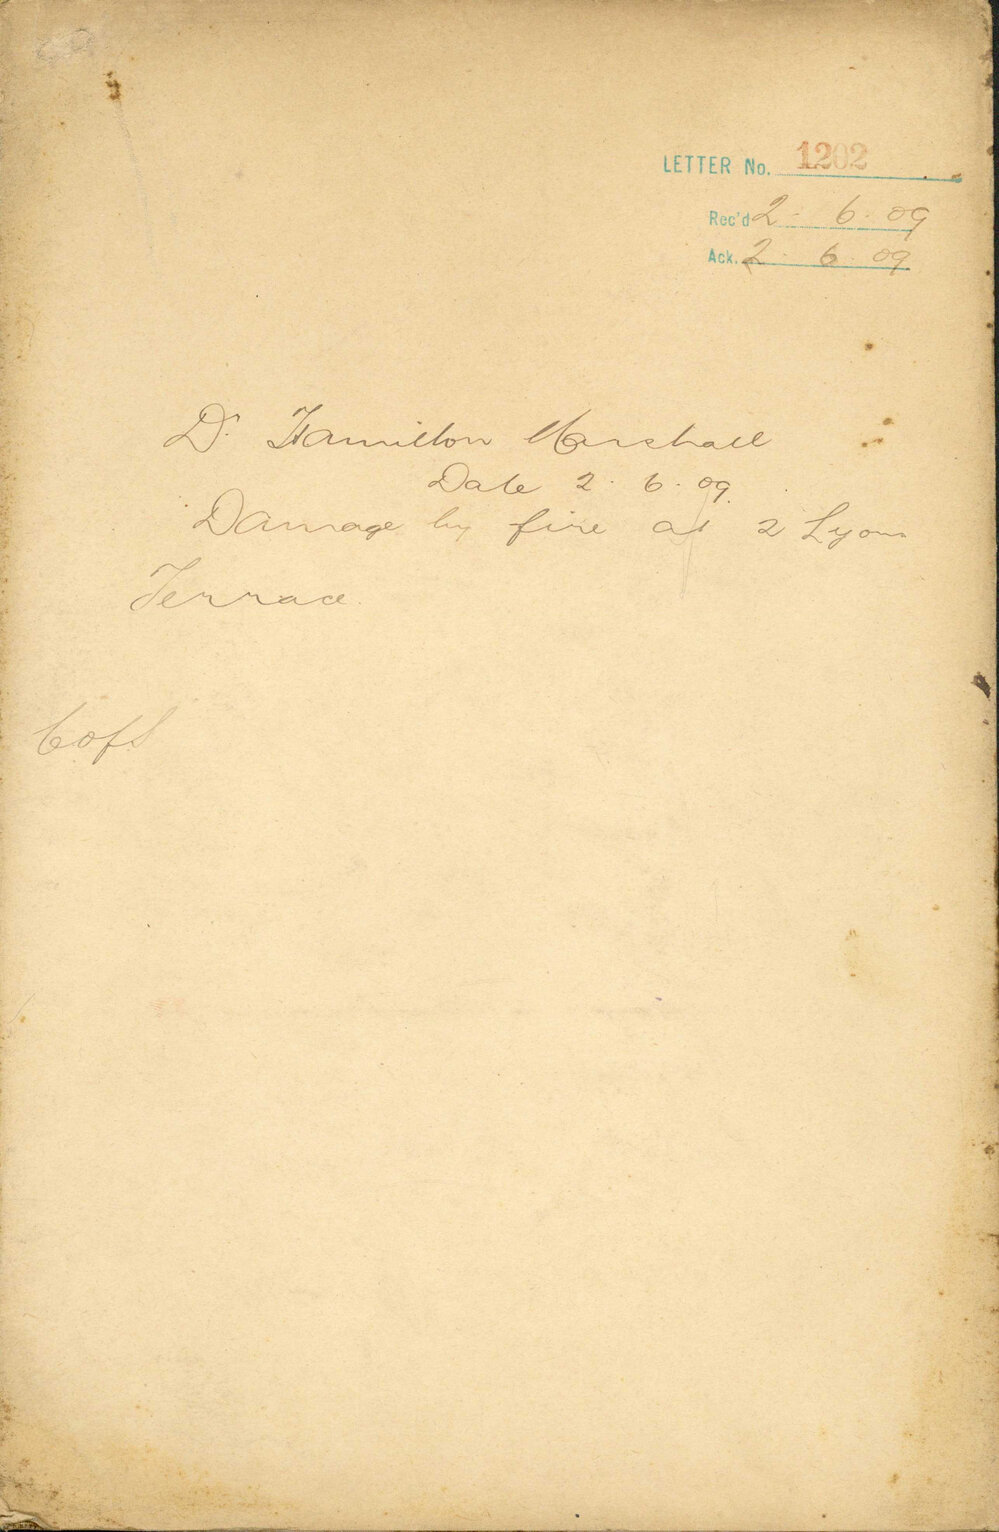 LETTER No. 1202
Rec'd 2. 6. 09
Ack. 2. 6. 09
Dr. Hamilton Marshall
Date 2. 6. 09.
Damage by fire at 2 Lyons
Terrace.
C of S